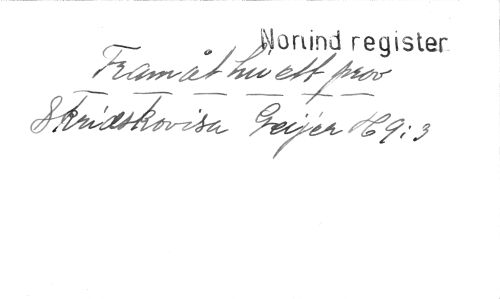 Norlind register
Framåt hu ett prov
Skridskovisa Geijer H 9:3